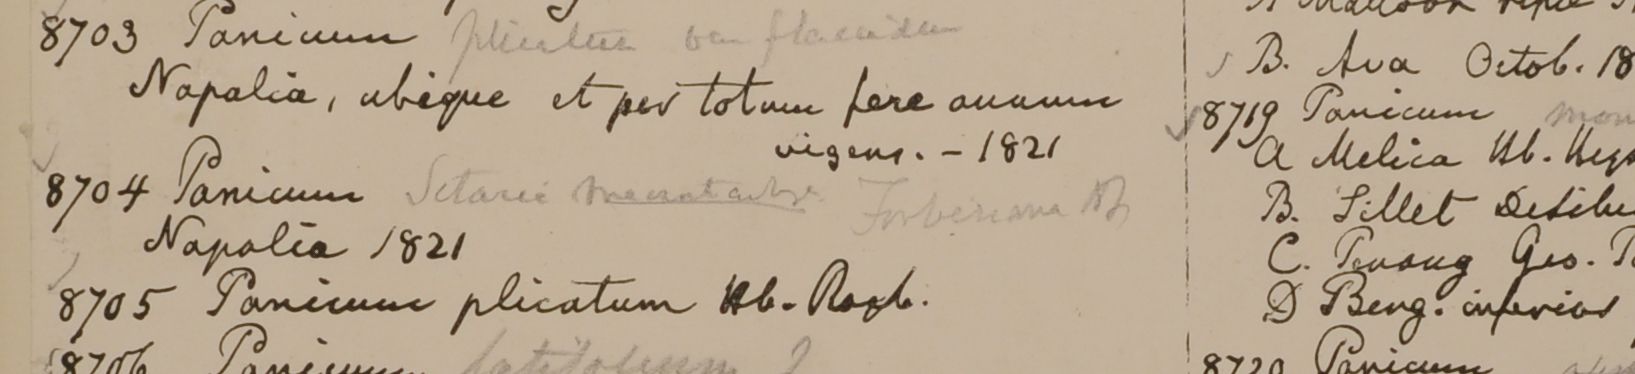 8703 Panicum
Napalia, ubique et per totum fere annum
vigens. – 1821
8704 Panicum Setaria Forbesiana
Napalia 1821
8705 Panicum plicatum Hb. Roxb.
8706 Panicum latifolium ?
B. Ava Octob. 18
8719 Panicum
a Melica Hb.
B. Sillet
C. Penang Geo.
D Beng. inferior
8720 Panicum